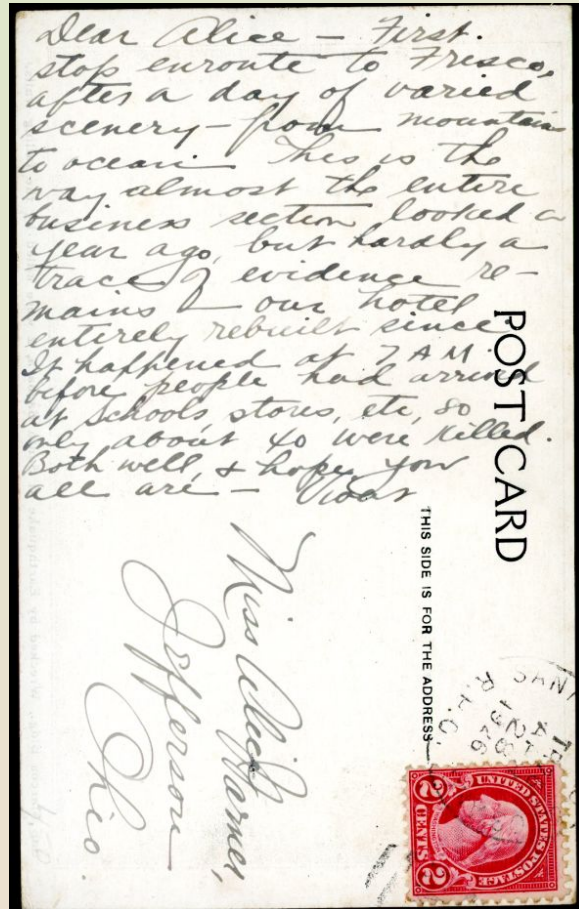 Dear Alice — First
stop enroute to Frisco,
after a day of varied
scenery — from mountain
to ocean. This is the
way almost the entire
business section looked a
year ago, but hardly a
trace of evidence re-
mains — our hotel
entirely rebuilt since.
It happened at 7 A M
before people had arrived
at schools stores, etc, so
only about 40 were killed.
Both well, & hope you
all are —
POST CARD
THIS SIDE IS FOR THE ADDRESS
Miss Alice Warner,
Jefferson
Ohio.
SAN
R.P.O.
UNITED STATES POSTAGE
2 CENTS 2